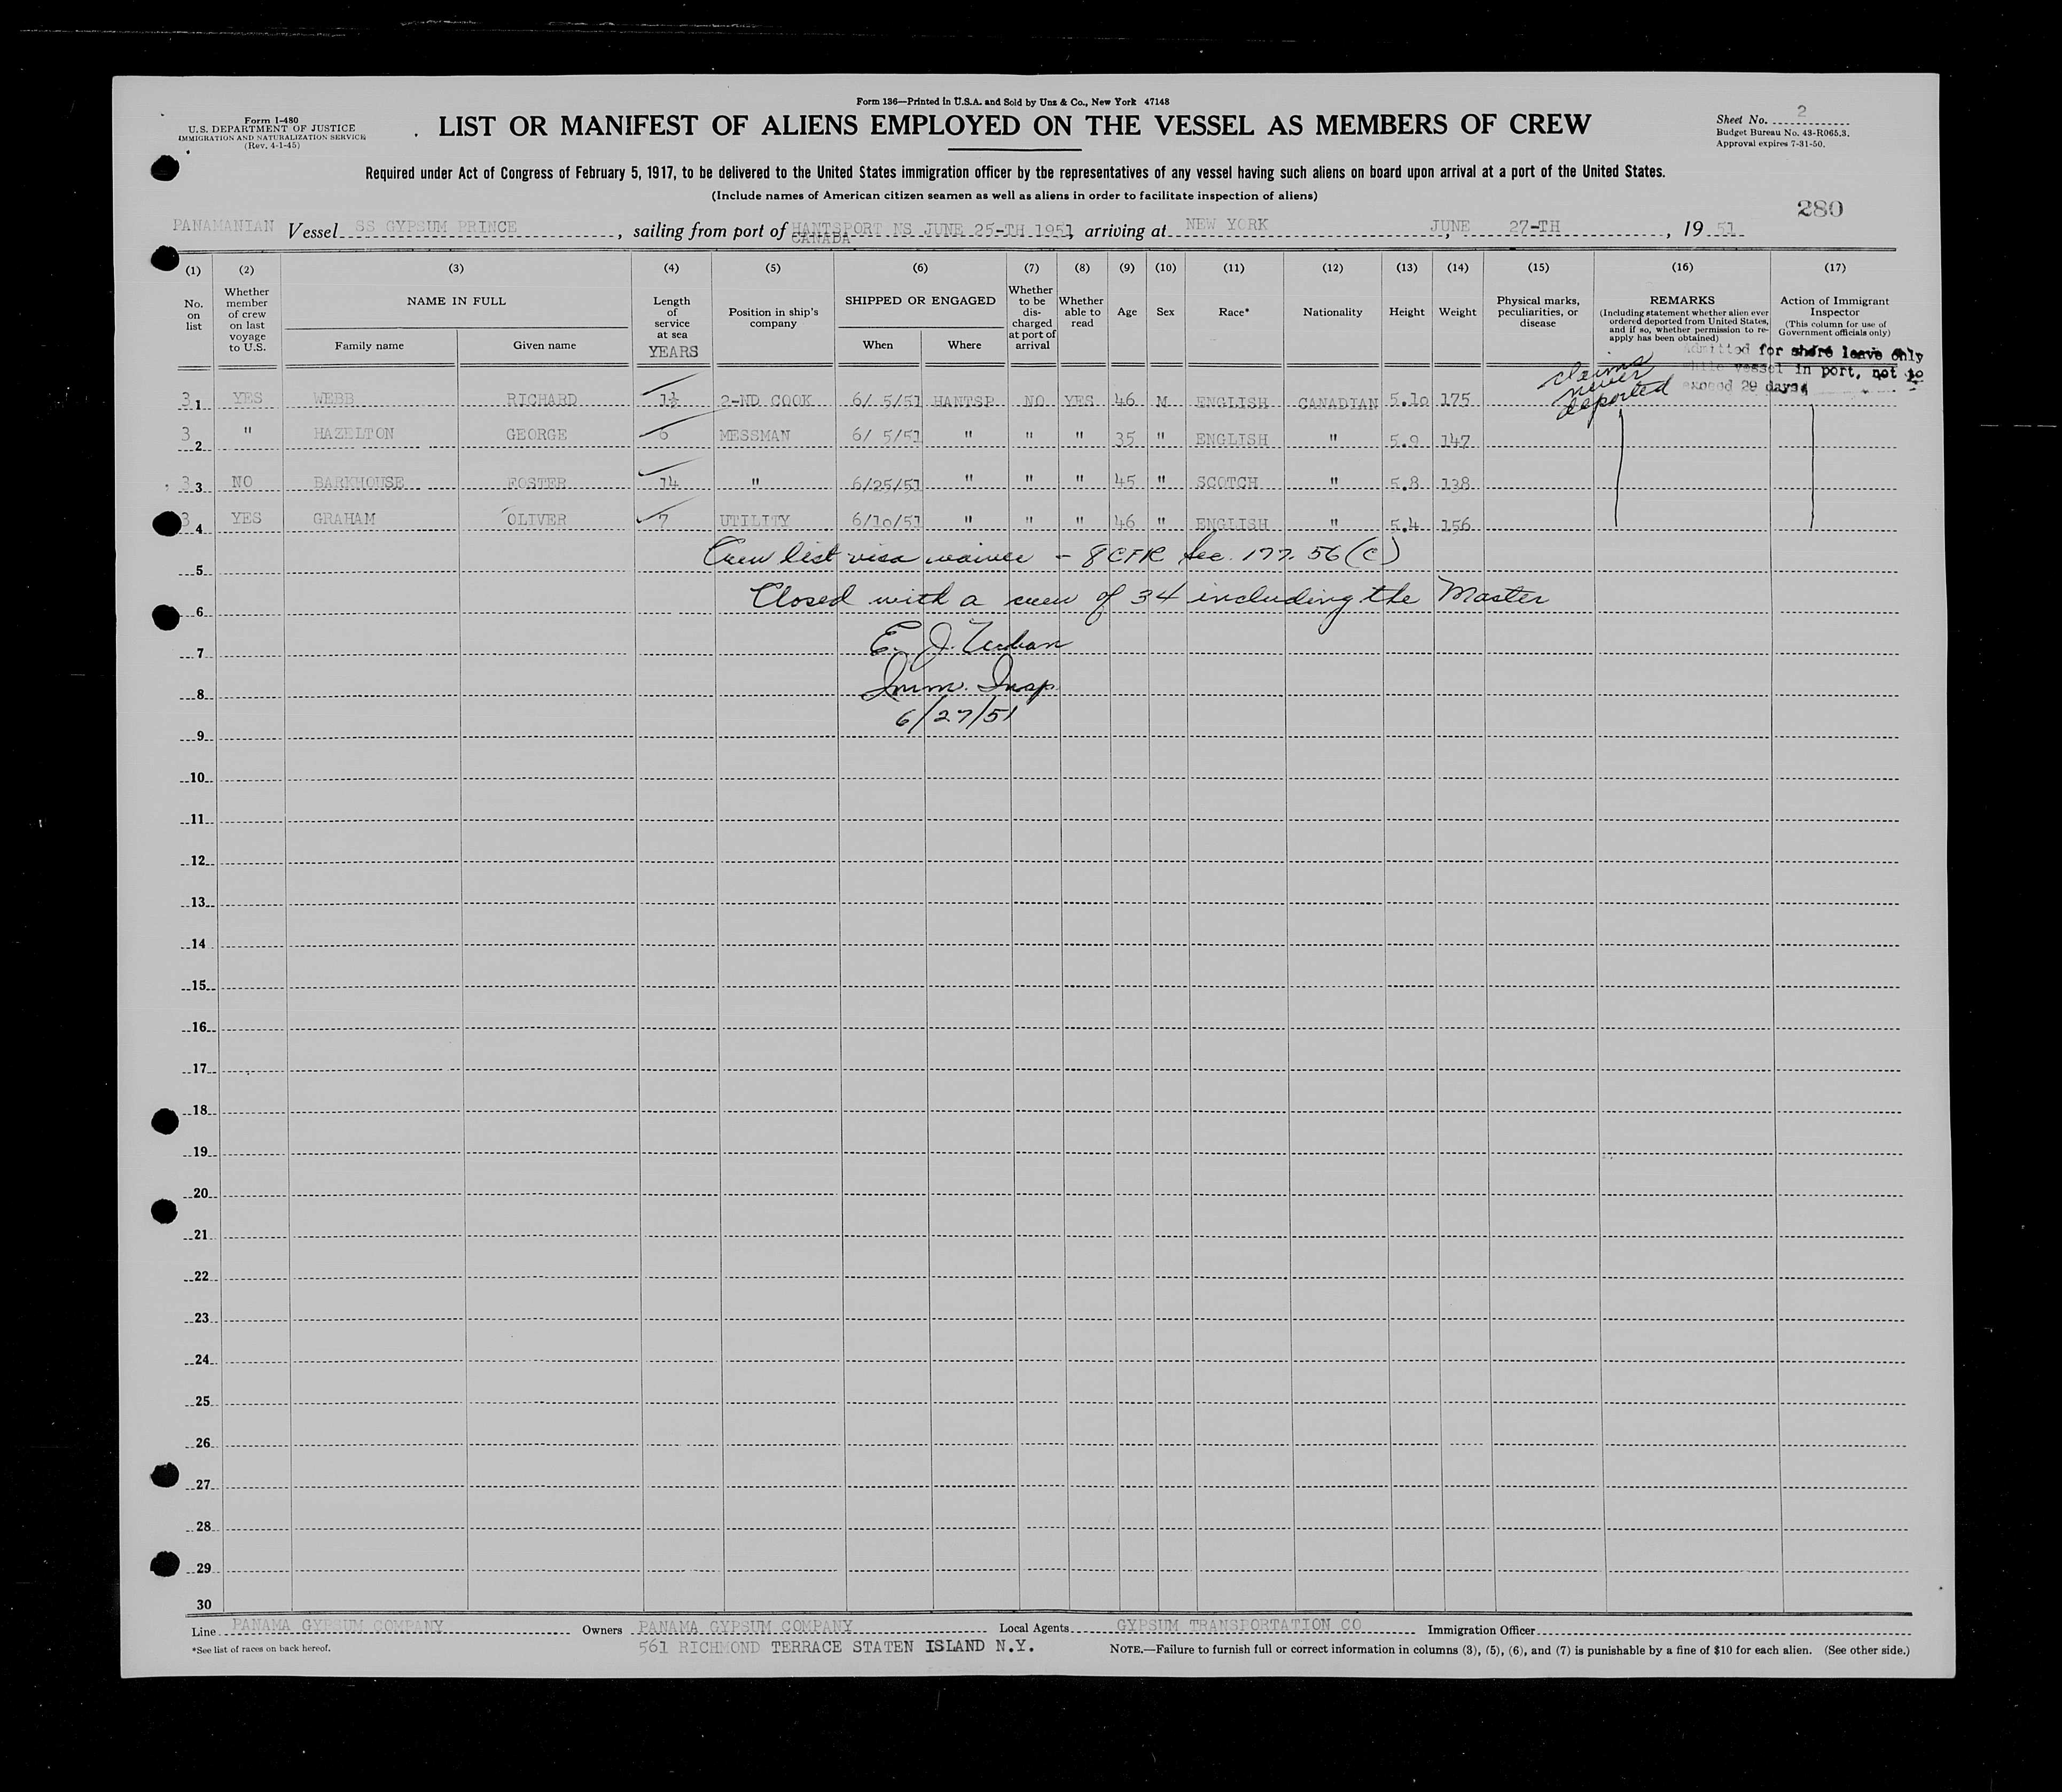 Form 136—Printed in U.S.A. and Sold by Unz & Co., New York 47148
Form I-480
U.S. DEPARTMENT OF JUSTICE
IMMIGRATION AND NATURALIZATION SERVICE
(Rev. 4-1-45)
LIST OR MANIFEST OF ALIENS EMPLOYED ON THE VESSEL AS MEMBERS OF CREW
Sheet No. 2
Budget Bureau No. 43-R065.3.
Approval expires 7-31-50.
Required under Act of Congress of February 5, 1917, to be delivered to the United States immigration officer by the representatives of any vessel having such aliens on board upon arrival at a port of the United States.
(Include names of American citizen seamen as well as aliens in order to facilitate inspection of aliens)
280
PANAMANIAN Vessel SS GYPSUM PRINCE, sailing from port of HANTSPORT NS JUNE 25-TH 1951, arriving at NEW YORK JUNE 27-TH, 19 51
CANADA
(1) (2) (3) (4) (5) (6) (7) (8) (9) (10) (11) (12) (13) (14) (15) (16) (17)
No. on list
Whether member of crew on last voyage to U.S.
NAME IN FULL
Family name
Given name
Length of service at sea
YEARS
Position in ship's company
SHIPPED OR ENGAGED
When
Where
Whether to be discharged at port of arrival
Whether able to read
Age
Sex
Race*
Nationality
Height
Weight
Physical marks, peculiarities, or disease
REMARKS
(Including statement whether alien ever ordered deported from United States, and if so, whether permission to re-apply has been obtained)
Action of Immigrant Inspector
(This column for use of Government officials only)
Admitted for shore leave only
while vessel in port, not to
exceed 29 days.
claims
never
deported
31 YES WEBB RICHARD 1½ 2-ND COOK 6/ 5/51 HANTSP NO YES 46 M ENGLISH CANADIAN 5.10 175
3 2 " HAZELTON GEORGE 6 MESSMAN 6/ 5/51 " " " 35 " ENGLISH " 5.9 147
33 NO BARKHOUSE FOSTER 14 " 6/25/51 " " " 45 " SCOTCH " 5.8 138
3 4 YES GRAHAM OLIVER 7 UTILITY 6/10/51 " " " 46 " ENGLISH " 5.4 156
Crew list visa waiver - 8 CFR Sec. 177.56(c)
5
Closed with a crew of 34 including the Master
6
E. J.
7
Imm. Insp.
8
6/27/51
9
10
11
12
13
14
15
16
17
18
19
20
21
22
23
24
25
26
27
28
29
30
Line PANAMA GYPSUM COMPANY Owners PANAMA GYPSUM COMPANY Local Agents GYPSUM TRANSPORTATION CO Immigration Officer
*See list of races on back hereof. 561 RICHMOND TERRACE STATEN ISLAND N.Y. NOTE.—Failure to furnish full or correct information in columns (3), (5), (6), and (7) is punishable by a fine of $10 for each alien. (See other side.)